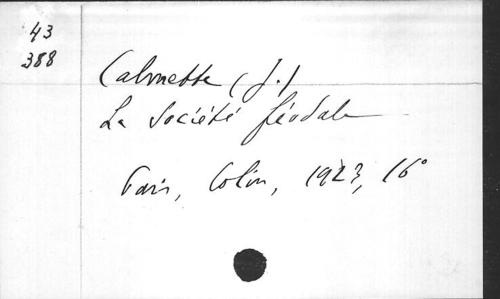 43
388
Calmette (J.)
La Société féodale
Paris, Colin, 1923, 16°